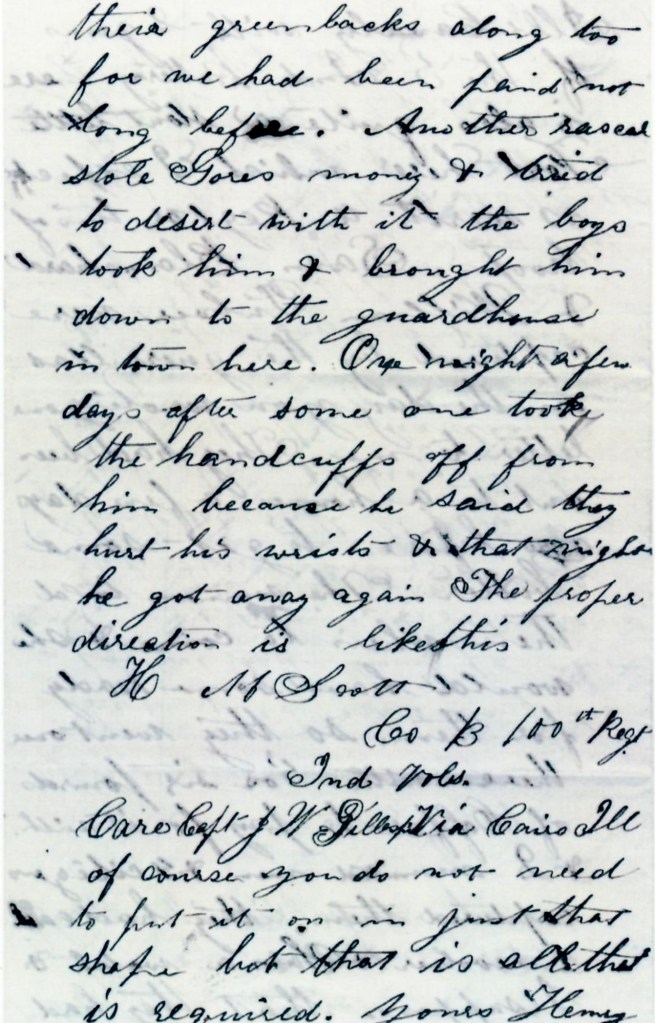 their greenbacks along too
for we had been paid not
long before. Another rascal
stole Gores money & tried
to desert with it the boys
took him & brought him
down to the guardhouse
in town here. One night a few
days after some one took
the handcuffs off from
him because he said they
hurt his wrists & that night
he got away again The proper
direction is like this
H M Scott
Co B 100th Regt
Ind Vols.
Care Capt J W Via Cairo Ill
of course you do not need
to put it on in just that
shape but that is all that
is required. Yours Henry